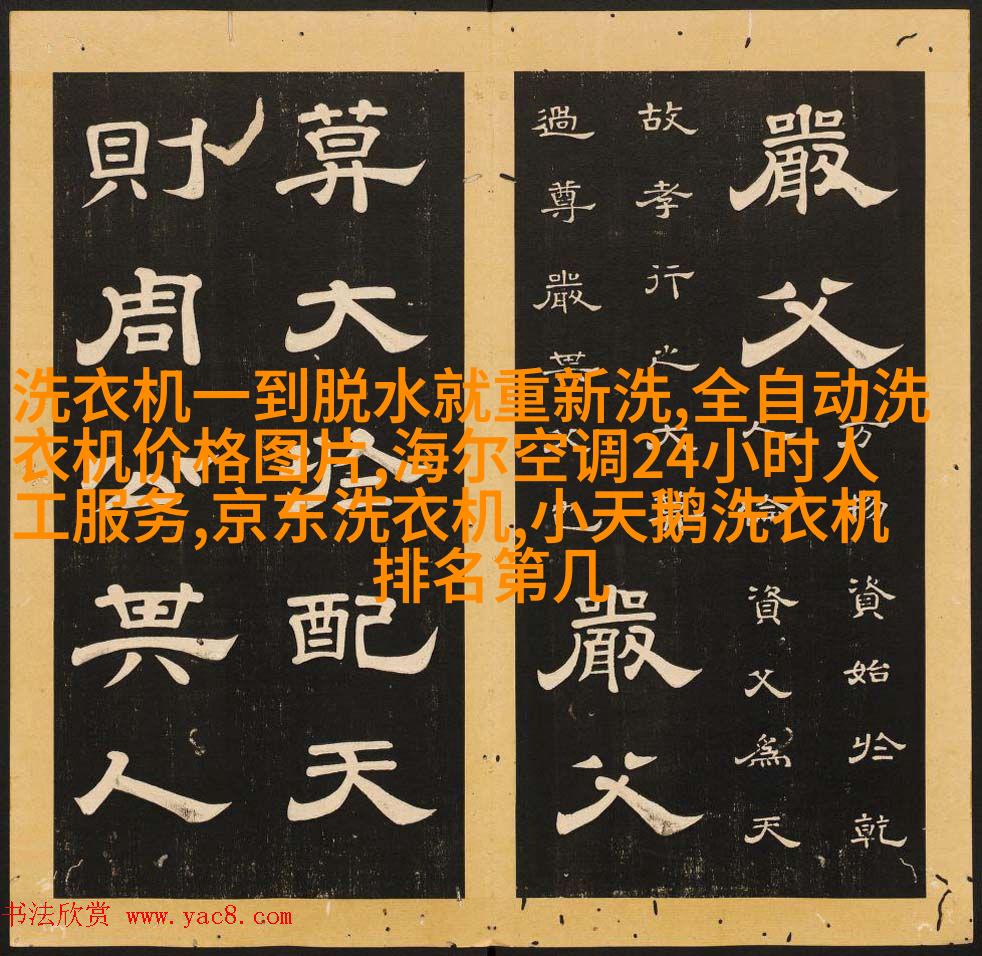 洗衣机一到脱水就重新洗,全自动洗
衣机价格图片,海尔空调24小时人
工服务,京东洗衣机,小天鹅洗衣机
排名第几
嚴父
万物資始於乾
人倫資父為天
故孝行之大莫
過尊嚴其父也
嚴父
莫大於配天
則周公其人
书法欣赏 www.yac8.com